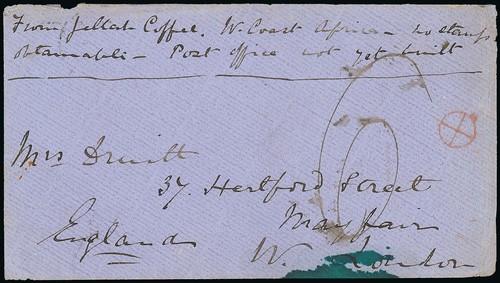 From Jellah Coffee. W. Coast Africa – no stamps
obtainable – Post office not yet built
Mrs Druitt
37. Hertford Street
May Fair
England
W. London